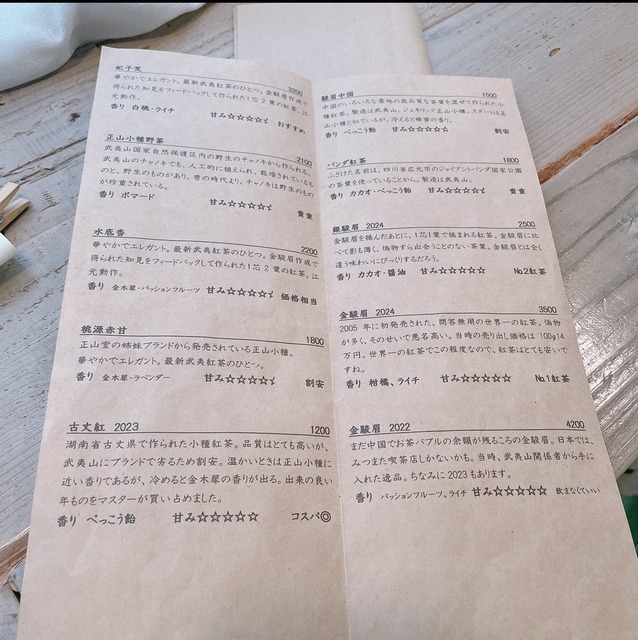 妃子笑 3200
華やかでエレガント。最新武夷紅茶のひとつ。金駿眉作成で
得られた知見をフィードバックして作られた1芯2葉の紅茶。江
元勲作。
香り 白桃・ライチ 甘み☆☆☆☆⯨ おすすめ
正山小種野茶 2100
武夷山国家自然保護区内の野生のチャノキから作られる。
武夷山のチャノキでも、人工的に植えられ、栽培されているも
のと、野生のものがあり、唐の時代より、チャノキは野生のもの
が珍重されている。
香り ポマード 甘み☆☆☆☆⯨ 貴重
水底香 2200
華やかでエレガント。最新武夷紅茶のひとつ。金駿眉作成で
得られた知見をフィードバックして作られた1芯2葉の紅茶。江
元勲作。
香り 金木犀・パッションフルーツ 甘み☆☆☆☆⯨ 価格相当
桃源赤甘 1800
正山堂の姉妹ブランドから発売されている正山小種。
華やかでエレガント。最新武夷紅茶のひとつ。
香り 金木犀・ラベンダー 甘み☆☆☆☆⯨ 割安
古丈紅 2023 1200
湖南省古丈県で作られた小種紅茶。品質はとても高いが、
武夷山にブランドで劣るため割安。温かいときは正山小種に
近い香りであるが、冷めると金木犀の香りが出る。出来の良い
年ものをマスターが買い占めました。
香り べっこう飴 甘み☆☆☆☆☆ コスパ◎
駿眉中国 1500
中国のいろいろな産地の高品質な茶葉を混ぜて作られた小
種紅茶。製造は武夷山。ジェネリック正山小種。スタートは正
山小種と似ているが、冷えると蜂蜜の香り。
香り べっこう飴 甘み☆☆☆☆⯨ 割安
パンダ紅茶 1800
ふざけた名前は、四川省広元市のジャイアントパンダ国家公園
の茶葉を使っていることから。製造は武夷山。
香り カカオ・べっこう飴 甘み☆☆☆☆⯨ 貴重
銀駿眉 2024 2500
金駿眉を摘んだあとに、1芯1葉で摘まれる紅茶。金駿眉に比
べて影も薄く、偽物すら出会うことのない茶葉。金駿眉とは全く
違う味わいにびっくりするだろう。
香り カカオ・醤油 甘み☆☆☆☆☆ No.2紅茶
金駿眉 2024 3500
2005 年に初発売された、問答無用の世界一の紅茶。偽物
が多く、そのせいで悪名高い。当時の売り出し価格は 100g14
万円。世界一の紅茶でこの程度なので、紅茶はとても安いで
すね。
香り 柑橘、ライチ 甘み☆☆☆☆☆ No.1紅茶
金駿眉 2022 4200
まだ中国でお茶バブルの余韻が残るころの金駿眉。日本では、
みつまた喫茶店しかないかも。当時、武夷山関係者から手に
入れた逸品。ちなみに 2023もあります。
香り パッションフルーツ、ライチ 甘み☆☆☆☆☆ 飲まなくていい